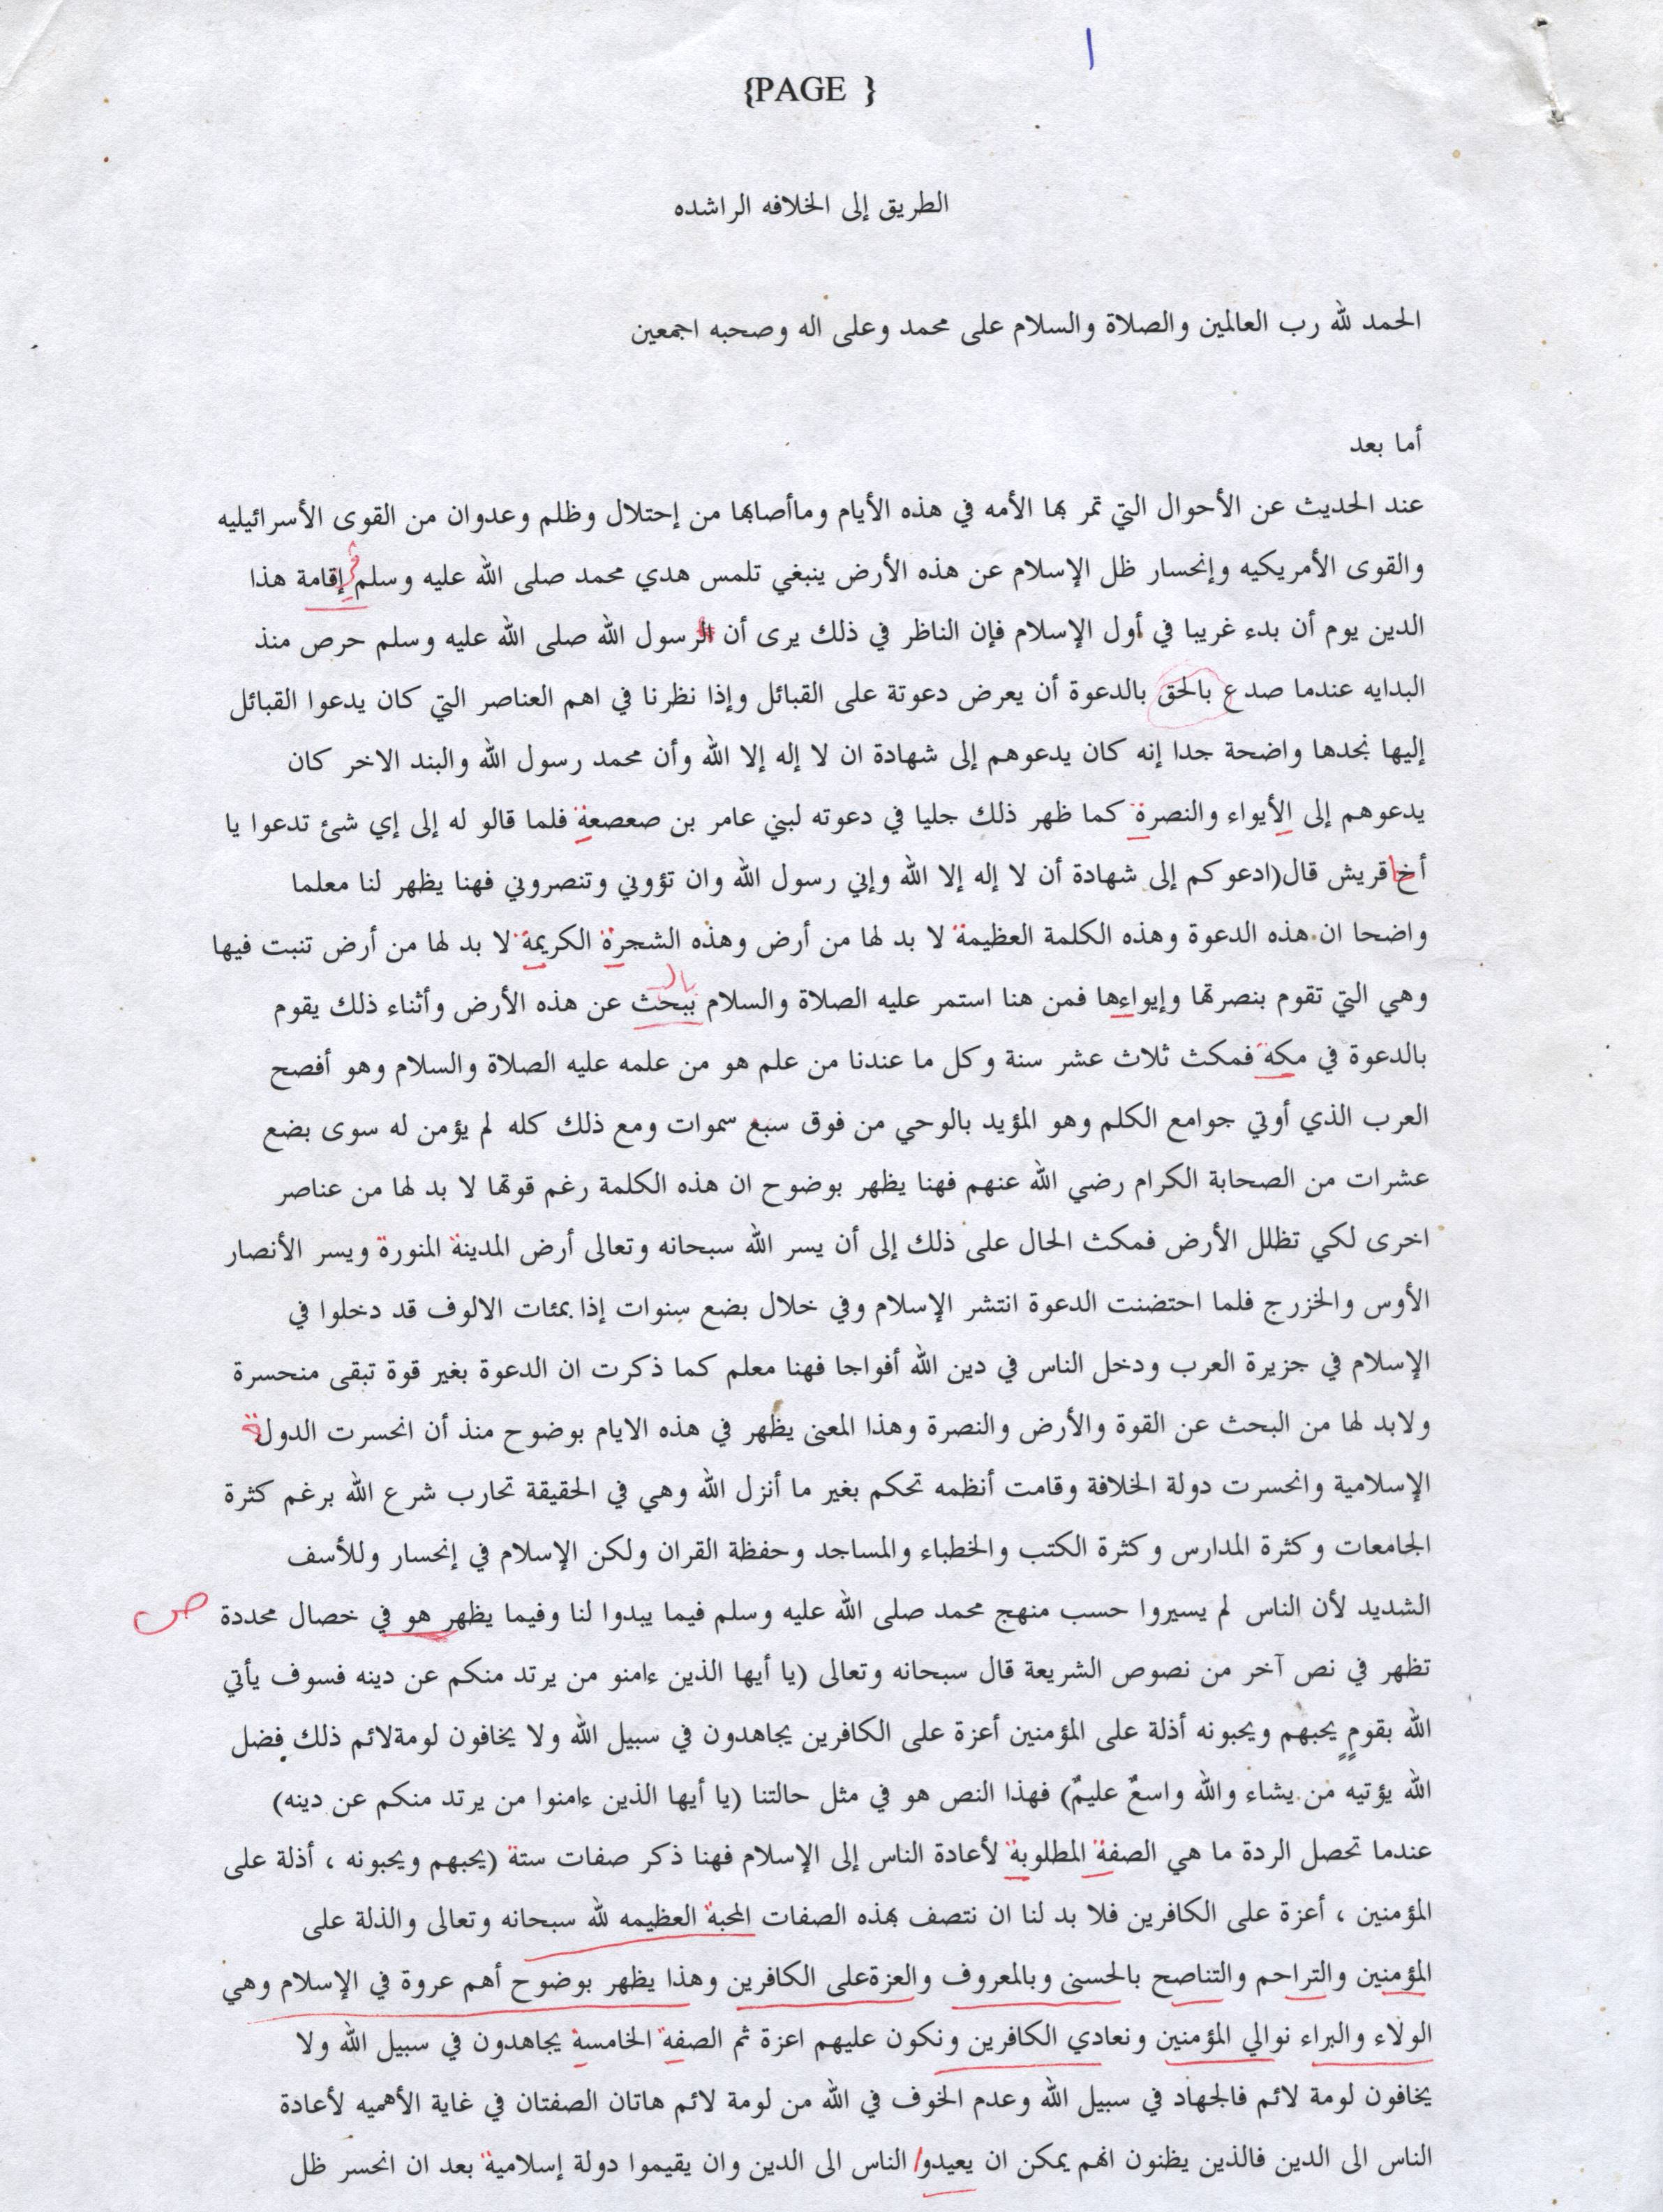 ١
{PAGE }
الطريق إلى الخلافه الراشده
الحمد لله رب العالمين والصلاة والسلام على محمد وعلى اله وصحبه اجمعين
أما بعد
عند الحديث عن الأحوال التي تمر بها الأمه في هذه الأيام وماأصابها من إحتلال وظلم وعدوان من القوى الأسرائيليه
والقوى الأمريكيه وإنحسار ظل الإسلام عن هذه الأرض ينبغي تلمس هدي محمد صلى الله عليه وسلم في إقامة هذا
الدين يوم أن بدء غريبا في أول الإسلام فإن الناظر في ذلك يرى أن الرسول الله صلى الله عليه وسلم حرص منذ
البدايه عندما صدع بالحق بالدعوة أن يعرض دعوتة على القبائل وإذا نظرنا في اهم العناصر التي كان يدعوا القبائل
إليها نجدها واضحة جدا إنه كان يدعوهم إلى شهادة ان لا إله إلا الله وأن محمد رسول الله والبند الاخر كان
يدعوهم إلى الأيواء والنصرة كما ظهر ذلك جليا في دعوته لبني عامر بن صعصعة فلما قالو له إلى إي شئ تدعوا يا
أخا قريش قال(ادعوكم إلى شهادة أن لا إله إلا الله وإني رسول الله وان تؤوني وتنصروني فهنا يظهر لنا معلما
واضحا ان هذه الدعوة وهذه الكلمة العظيمة لا بد لها من أرض وهذه الشجرة الكريمة لا بد لها من أرض تنبت فيها
وهي التي تقوم بنصرتها وإيواءها فمن هنا استمر عليه الصلاة والسلام ببحث بالـ عن هذه الأرض وأثناء ذلك يقوم
بالدعوة في مكة فمكث ثلاث عشر سنة وكل ما عندنا من علم هو من علمه عليه الصلاة والسلام وهو أفصح
العرب الذي أوتي جوامع الكلم وهو المؤيد بالوحي من فوق سبع سموات ومع ذلك كله لم يؤمن له سوى بضع
عشرات من الصحابة الكرام رضي الله عنهم فهنا يظهر بوضوح ان هذه الكلمة رغم قوتها لا بد لها من عناصر
اخرى لكي تظلل الأرض فمكث الحال على ذلك إلى أن يسر الله سبحانه وتعالى أرض المدينة المنورة ويسر الأنصار
الأوس والخزرج فلما احتضنت الدعوة انتشر الإسلام وفي خلال بضع سنوات إذا بمئات الالوف قد دخلوا في
الإسلام في جزيرة العرب ودخل الناس في دين الله أفواجا فهنا معلم كما ذكرت ان الدعوة بغير قوة تبقى منحسرة
ولابد لها من البحث عن القوة والأرض والنصرة وهذا المعنى يظهر في هذه الايام بوضوح منذ أن انحسرت الدولة
الإسلامية وانحسرت دولة الخلافة وقامت أنظمه تحكم بغير ما أنزل الله وهي في الحقيقة تحارب شرع الله برغم كثرة
الجامعات وكثرة المدارس وكثرة الكتب والخطباء والمساجد وحفظة القران ولكن الإسلام في إنحسار وللأسف
الشديد لأن الناس لم يسيروا حسب منهج محمد صلى الله عليه وسلم فيما يبدوا لنا وفيما يظهر هو في خصال محددة ص
تظهر في نص آخر من نصوص الشريعة قال سبحانه وتعالى (يا أيها الذين ءامنو من يرتد منكم عن دينه فسوف يأتي
الله بقومٍ يحبهم ويحبونه أذلة على المؤمنين أعزة على الكافرين يجاهدون في سبيل الله ولا يخافون لومةلائم ذلك فضل
الله يؤتيه من يشاء والله واسعٌ عليمٌ) فهذا النص هو في مثل حالتنا (يا أيها الذين ءامنوا من يرتد منكم عن دينه)
عندما تحصل الردة ما هي الصفة المطلوبة لأعادة الناس إلى الإسلام فهنا ذكر صفات ستة (يحبهم ويحبونه ، أذلة على
المؤمنين ، أعزة على الكافرين فلا بد لنا ان نتصف بهذه الصفات المحبة العظيمه لله سبحانه وتعالى والذلة على
المؤمنين والتراحم والتناصح بالحسنى وبالمعروف والعزةعلى الكافرين وهذا يظهر بوضوح أهم عروة في الإسلام وهي
الولاء والبراء نوالي المؤمنين ونعادي الكافرين ونكون عليهم اعزة ثم الصفة الخامسة يجاهدون في سبيل الله ولا
يخافون لومة لائم فالجهاد في سبيل الله وعدم الخوف في الله من لومة لائم هاتان الصفتان في غاية الأهميه لأعادة
الناس الى الدين فالذين يظنون انهم يمكن ان يعيدوا الناس الى الدين وان يقيموا دولة إسلامية بعد ان انحسر ظل